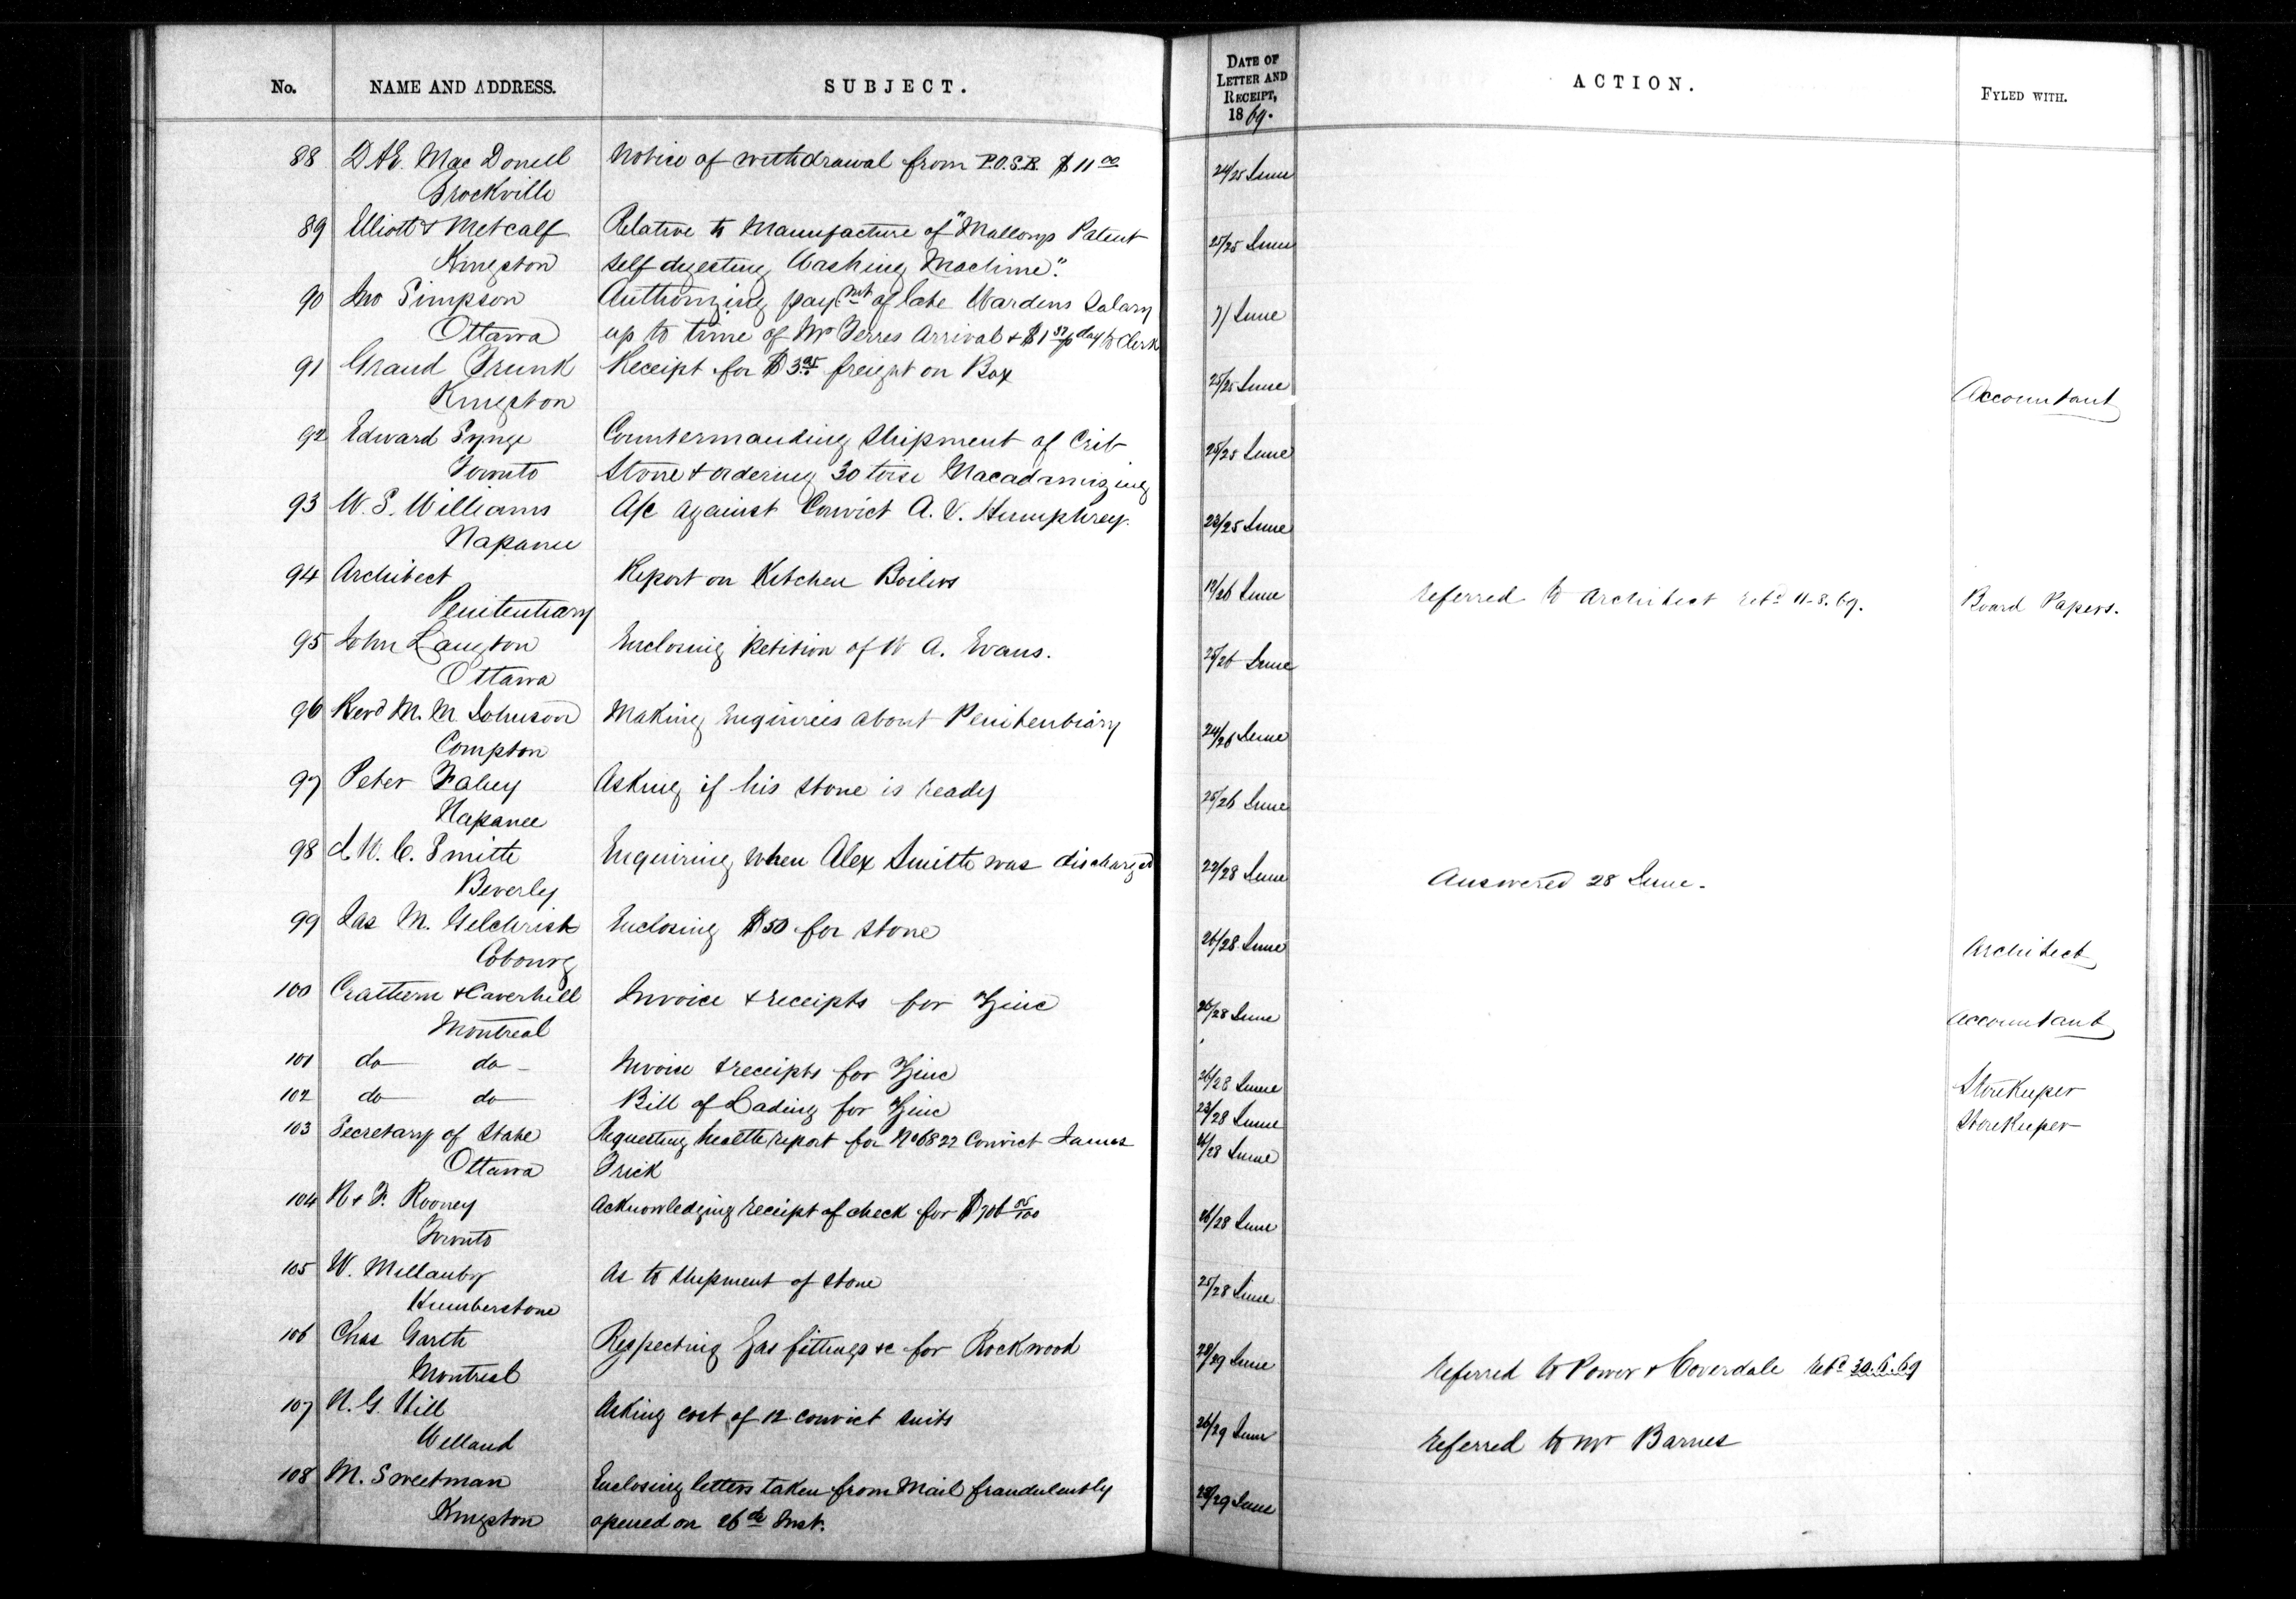 No. NAME AND ADDRESS. SUBJECT. DATE OF LETTER AND RECEIPT, 1869. ACTION. FYLED WITH.
88 D.A.E. MacDonell Notice of withdrawal from P.O.S.B. $11 00 24/25 June
Brockville
89 Elliott & Metcalf Relative to Manufacture of "Mallorys Patent 25/25 June
Kingston Self digesting Washing Machine".
90 Jno Simpson Authorizing paymt of late Wardens Salary 7/ June
Ottawa up to time of Mr Ferres Arrival & $1 day to Clerk
91 Grand Trunk Receipt for $3.95 freight on Box 25/25 June Accountant
Kingston
92 Edward Synge Countermanding Shipment of Crib 25/25 June
Toronto Stone & ordering 30 toise Macadamizing
93 W. S. Williams A/c against Convict A. V. Humphrey. 23/25 June
Napanee
94 Architect Report on Kitchen Boilers 19/26 June Referred to Architect Retd 11-8.69. Board Papers.
Penitentiary
95 John Langton Enclosing Petition of W A. Evans. 25/26 June
Ottawa
96 Revd M. M Johnson Making Enquiries about Penitentiary 24/26 June
Compton
97 Peter Fahey Asking if his stone is ready 25/26 June
Napanee
98 W. C. Smith Enquiring when Alex Smith was discharged 22/28 June Answered 28 June.
Beverley
99 Jas M. Gilchrist Enclosing $50 for stone 26/28 June Architect
Cobourg
100 Crathern & Caverhill Invoice & receipts for Zinc 26/28 June Accountant
Montreal
101 do do Invoice & receipts for Zinc 26/28 June Storekeeper
102 do do Bill of Lading for Zinc 23/28 June Storekeeper
103 Secretary of State Requesting health report for No 6822 Convict James 26/28 June
Ottawa Trick
104 N & F. Rooney Acknowledging receipt of check for $706 85/100 26/28 June
Toronto
105 W. Mellanby As to shipment of stone 25/28 June
Humberstone
106 Chas Garth Respecting Gas fittings &c for Rockwood 28/29 June Referred to Power & Coverdale Retd 30.6.69
Montreal
107 N. G. Hill Asking cost of 12 convict suits 26/29 June Referred to Mr Barnes
Welland
108 M. Sweetman Enclosing letters taken from Mail fraudulently 28/29 June
Kingston opened on 26th Inst.